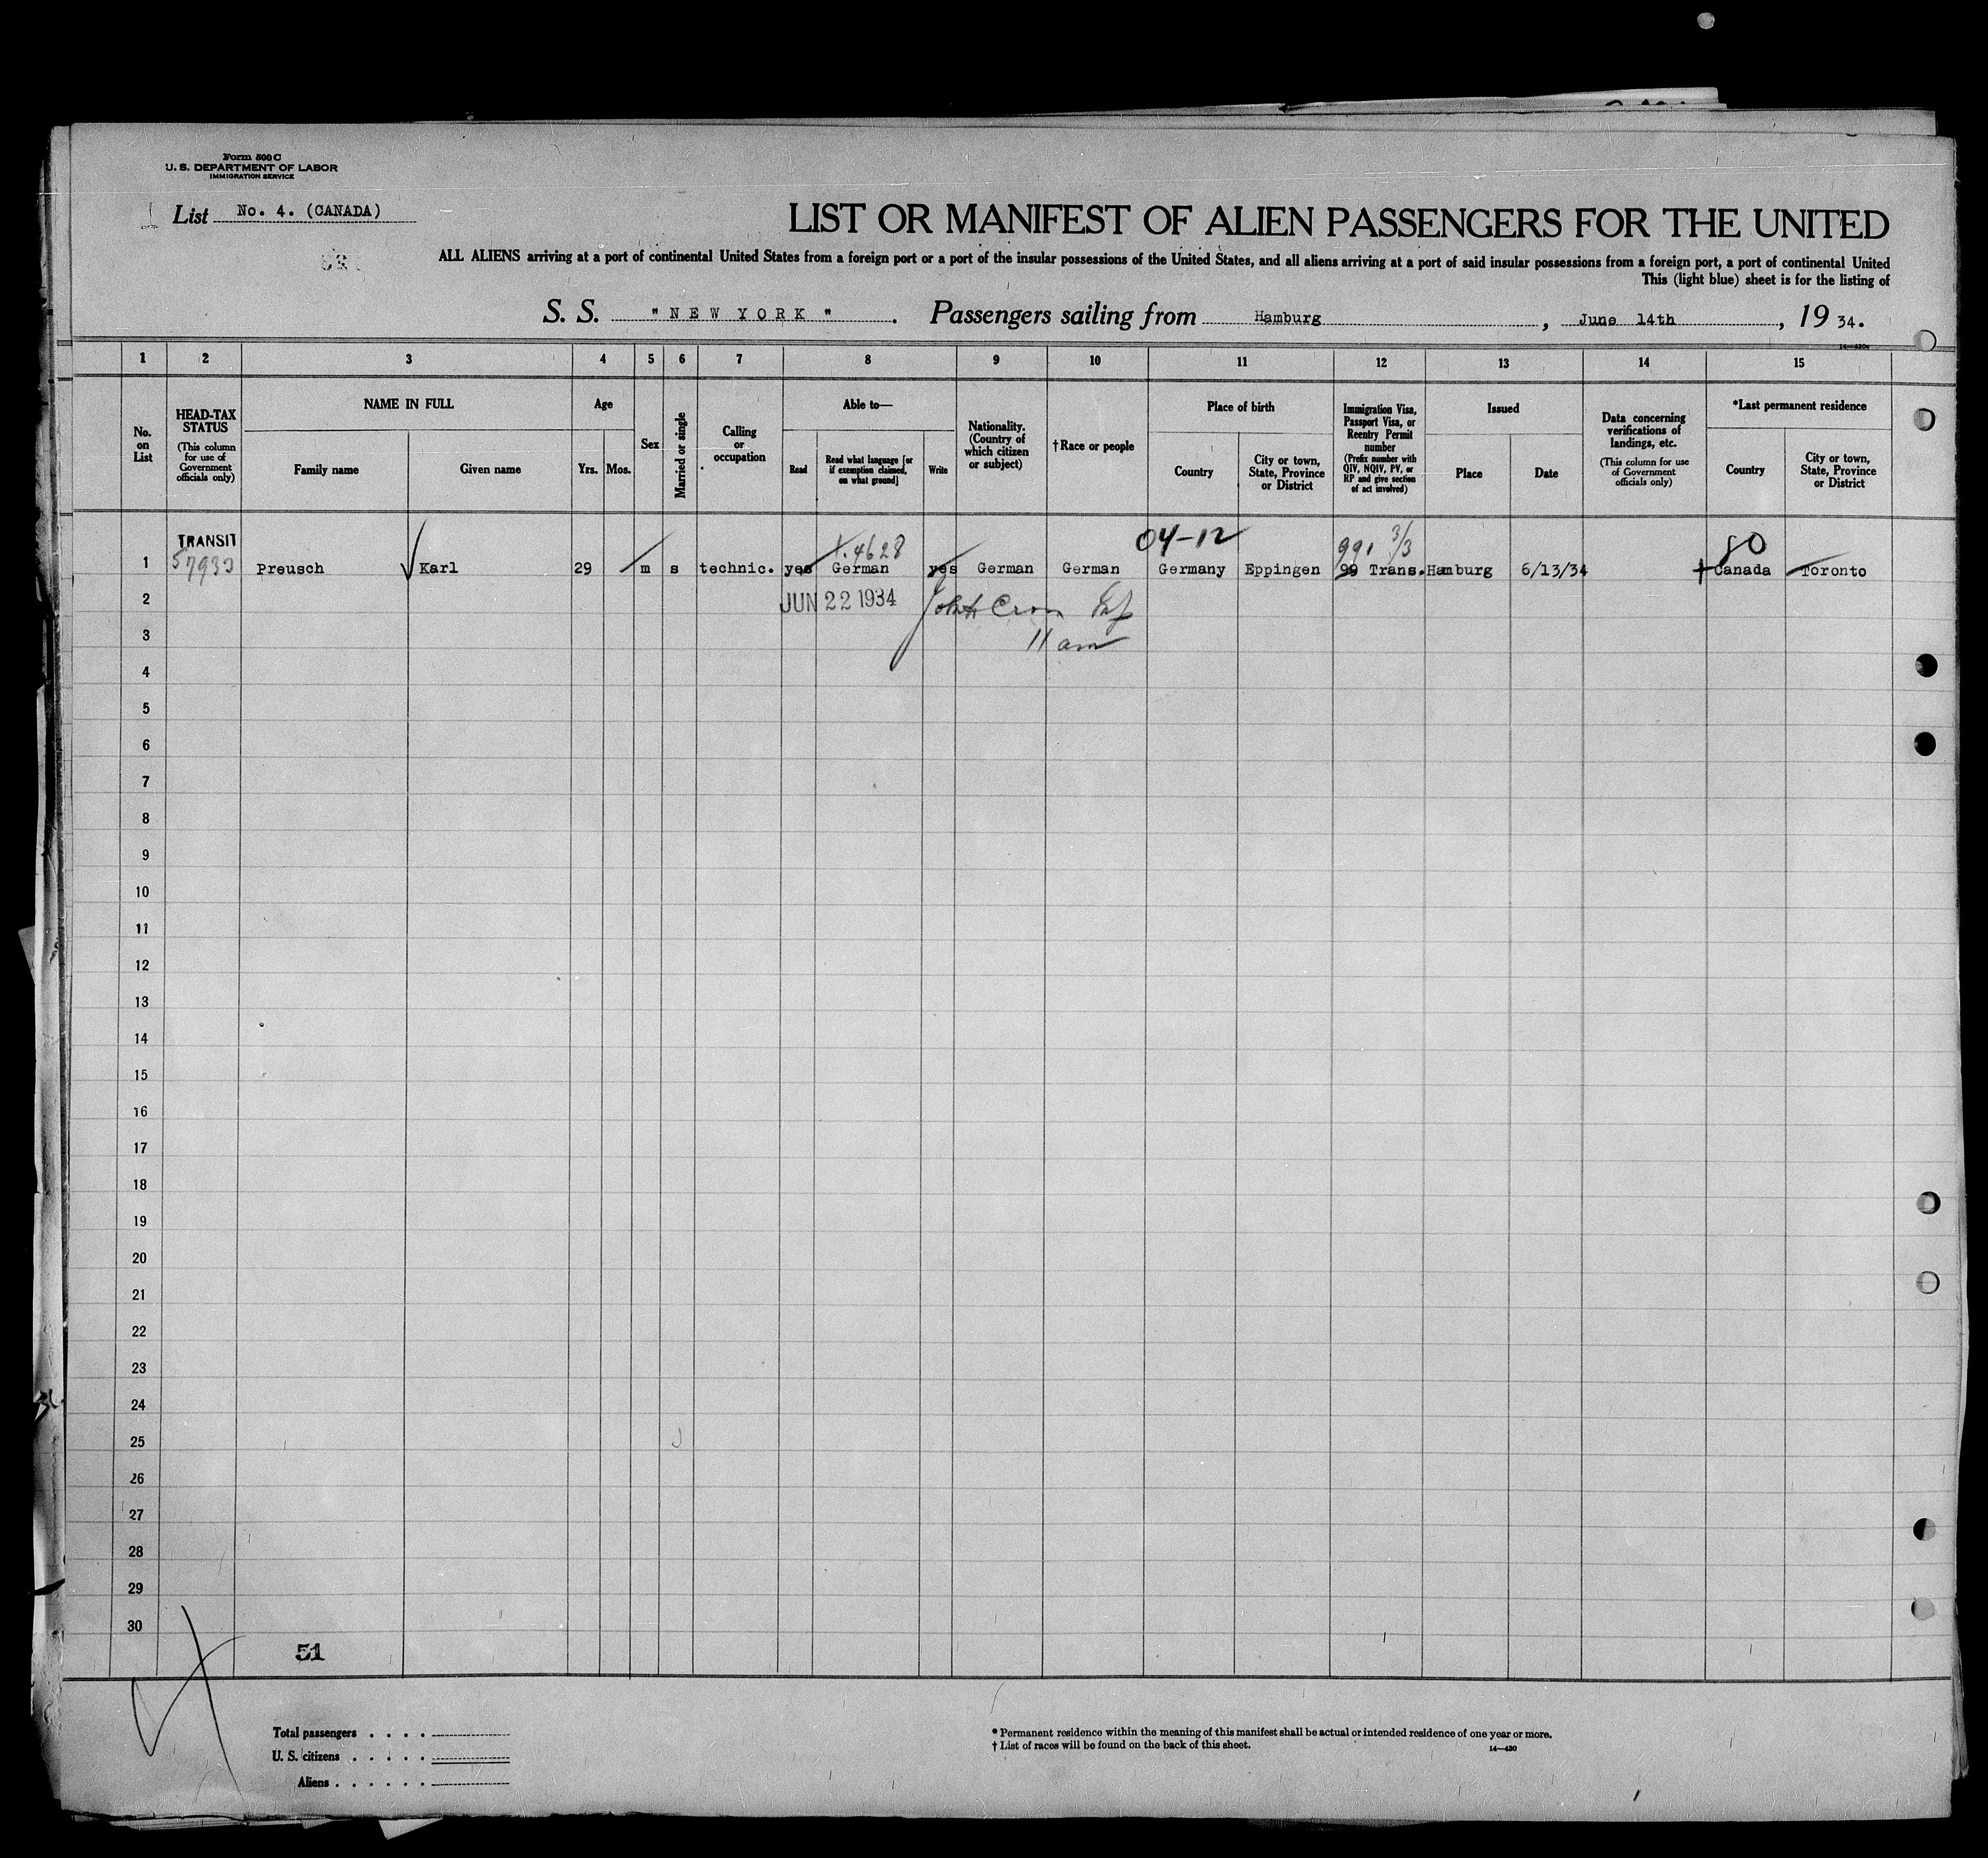 Form 500 C
U. S. DEPARTMENT OF LABOR
IMMIGRATION SERVICE
List No. 4. (CANADA)
LIST OR MANIFEST OF ALIEN PASSENGERS FOR THE UNITED
ALL ALIENS arriving at a port of continental United States from a foreign port or a port of the insular possessions of the United States, and all aliens arriving at a port of said insular possessions from a foreign port, a port of continental United
This (light blue) sheet is for the listing of
S. S. "NEW YORK". Passengers sailing from Hamburg, June 14th, 19 34.
1 2 3 4 5 6 7 8 9 10 11 12 13 14 15
No. on List
HEAD-TAX STATUS
(This column for use of Government officials only)
NAME IN FULL
Family name
Given name
Age
Yrs.
Mos.
Sex
Married or single
Calling or occupation
Able to—
Read
Read what language [or if exemption claimed, on what ground]
Write
Nationality. (Country of which citizen or subject)
†Race or people
Place of birth
Country
City or town, State, Province or District
Immigration Visa, Passport Visa, or Reentry Permit number
(Prefix number with QIV, NQIV, PV, or RP and give section of act involved)
Issued
Place
Date
Data concerning verifications of landings, etc.
(This column for use of Government officials only)
*Last permanent residence
Country
City or town, State, Province or District
TRANSIT
04-12
991 3/3
80
1 Preusch Karl 29 m s technic. yes German yes German German Germany Eppingen 99 Trans. Hamburg 6/13/34 Canada Toronto
2 JUN 22 1934 John
3 11 am
4
5
6
7
8
9
10
11
12
13
14
15
16
17
18
19
20
21
22
23
24
25
26
27
28
29
30
51
Total passengers . . . .
U. S. citizens . . . . .
Aliens . . . . . .
* Permanent residence within the meaning of this manifest shall be actual or intended residence of one year or more.
† List of races will be found on the back of this sheet.
14—430